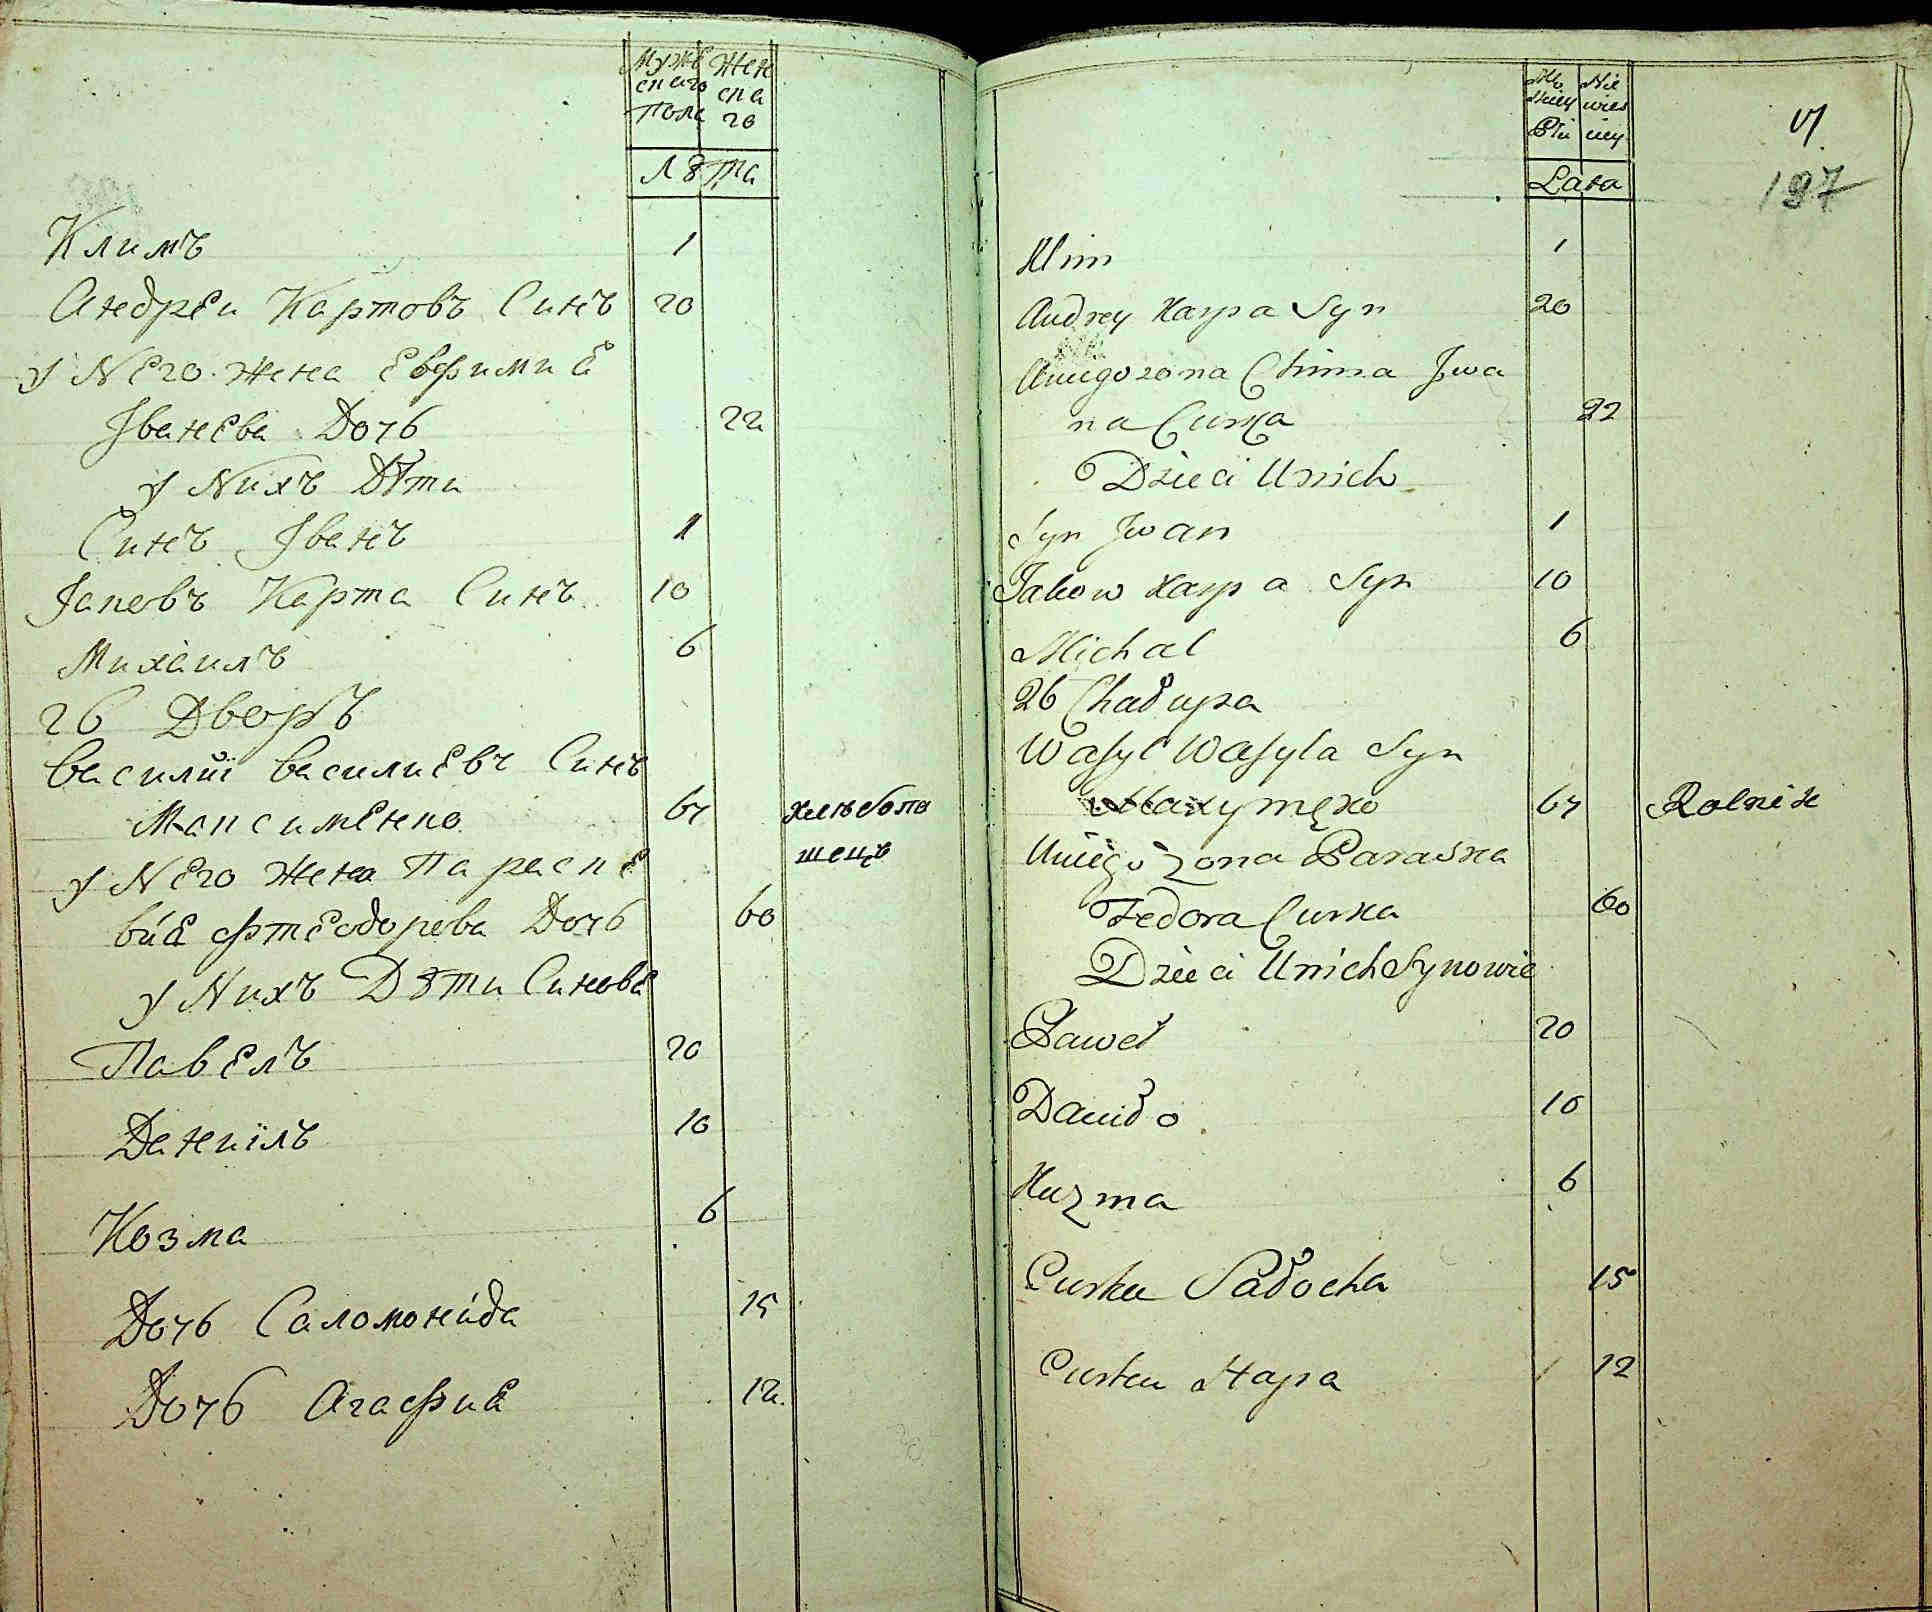 Мужe Жен
скаго ска
Пола го
Лѣта
Климъ 1
Андреи Карповъ Синъ 20
у Него Жена Евфимиа
Іванева Дочь 22
у Нихъ Дѣти
Синъ Іванъ 1
Іаковъ Карпа Синъ 10
Михаилъ 6
26 Дворъ
Василий Василиевъ Синъ
Максименко 67 хлѣбопа
шецъ
у Него Жена Параске
виа Фтеодорова Дочь 60
у Нихъ Дѣти Синове
Павелъ 20
Даниилъ 10
Козма 6
Дочь Саломонида 15
Дочь Агафиа 12
Nie
wies
Płci ciey
Lata
VI
197
Klim 1
Andrey Karpa Syn 20
Uniego zona Chima Iwa
na Curka 22
Dzieci Unich
Syn Iwan 1
Jakow Karpa Syn 10
Michal 6
26 Chałupa
Wasyl Wasyla Syn
Maxymęko 67 Rolnik
Uniego zona Paraska
Fedora Curka 60
Dzieci Unich Synowie
Paweł 20
Daniło 10
Kuzma 6
Curka Sałocha 15
Curka Hapa 12